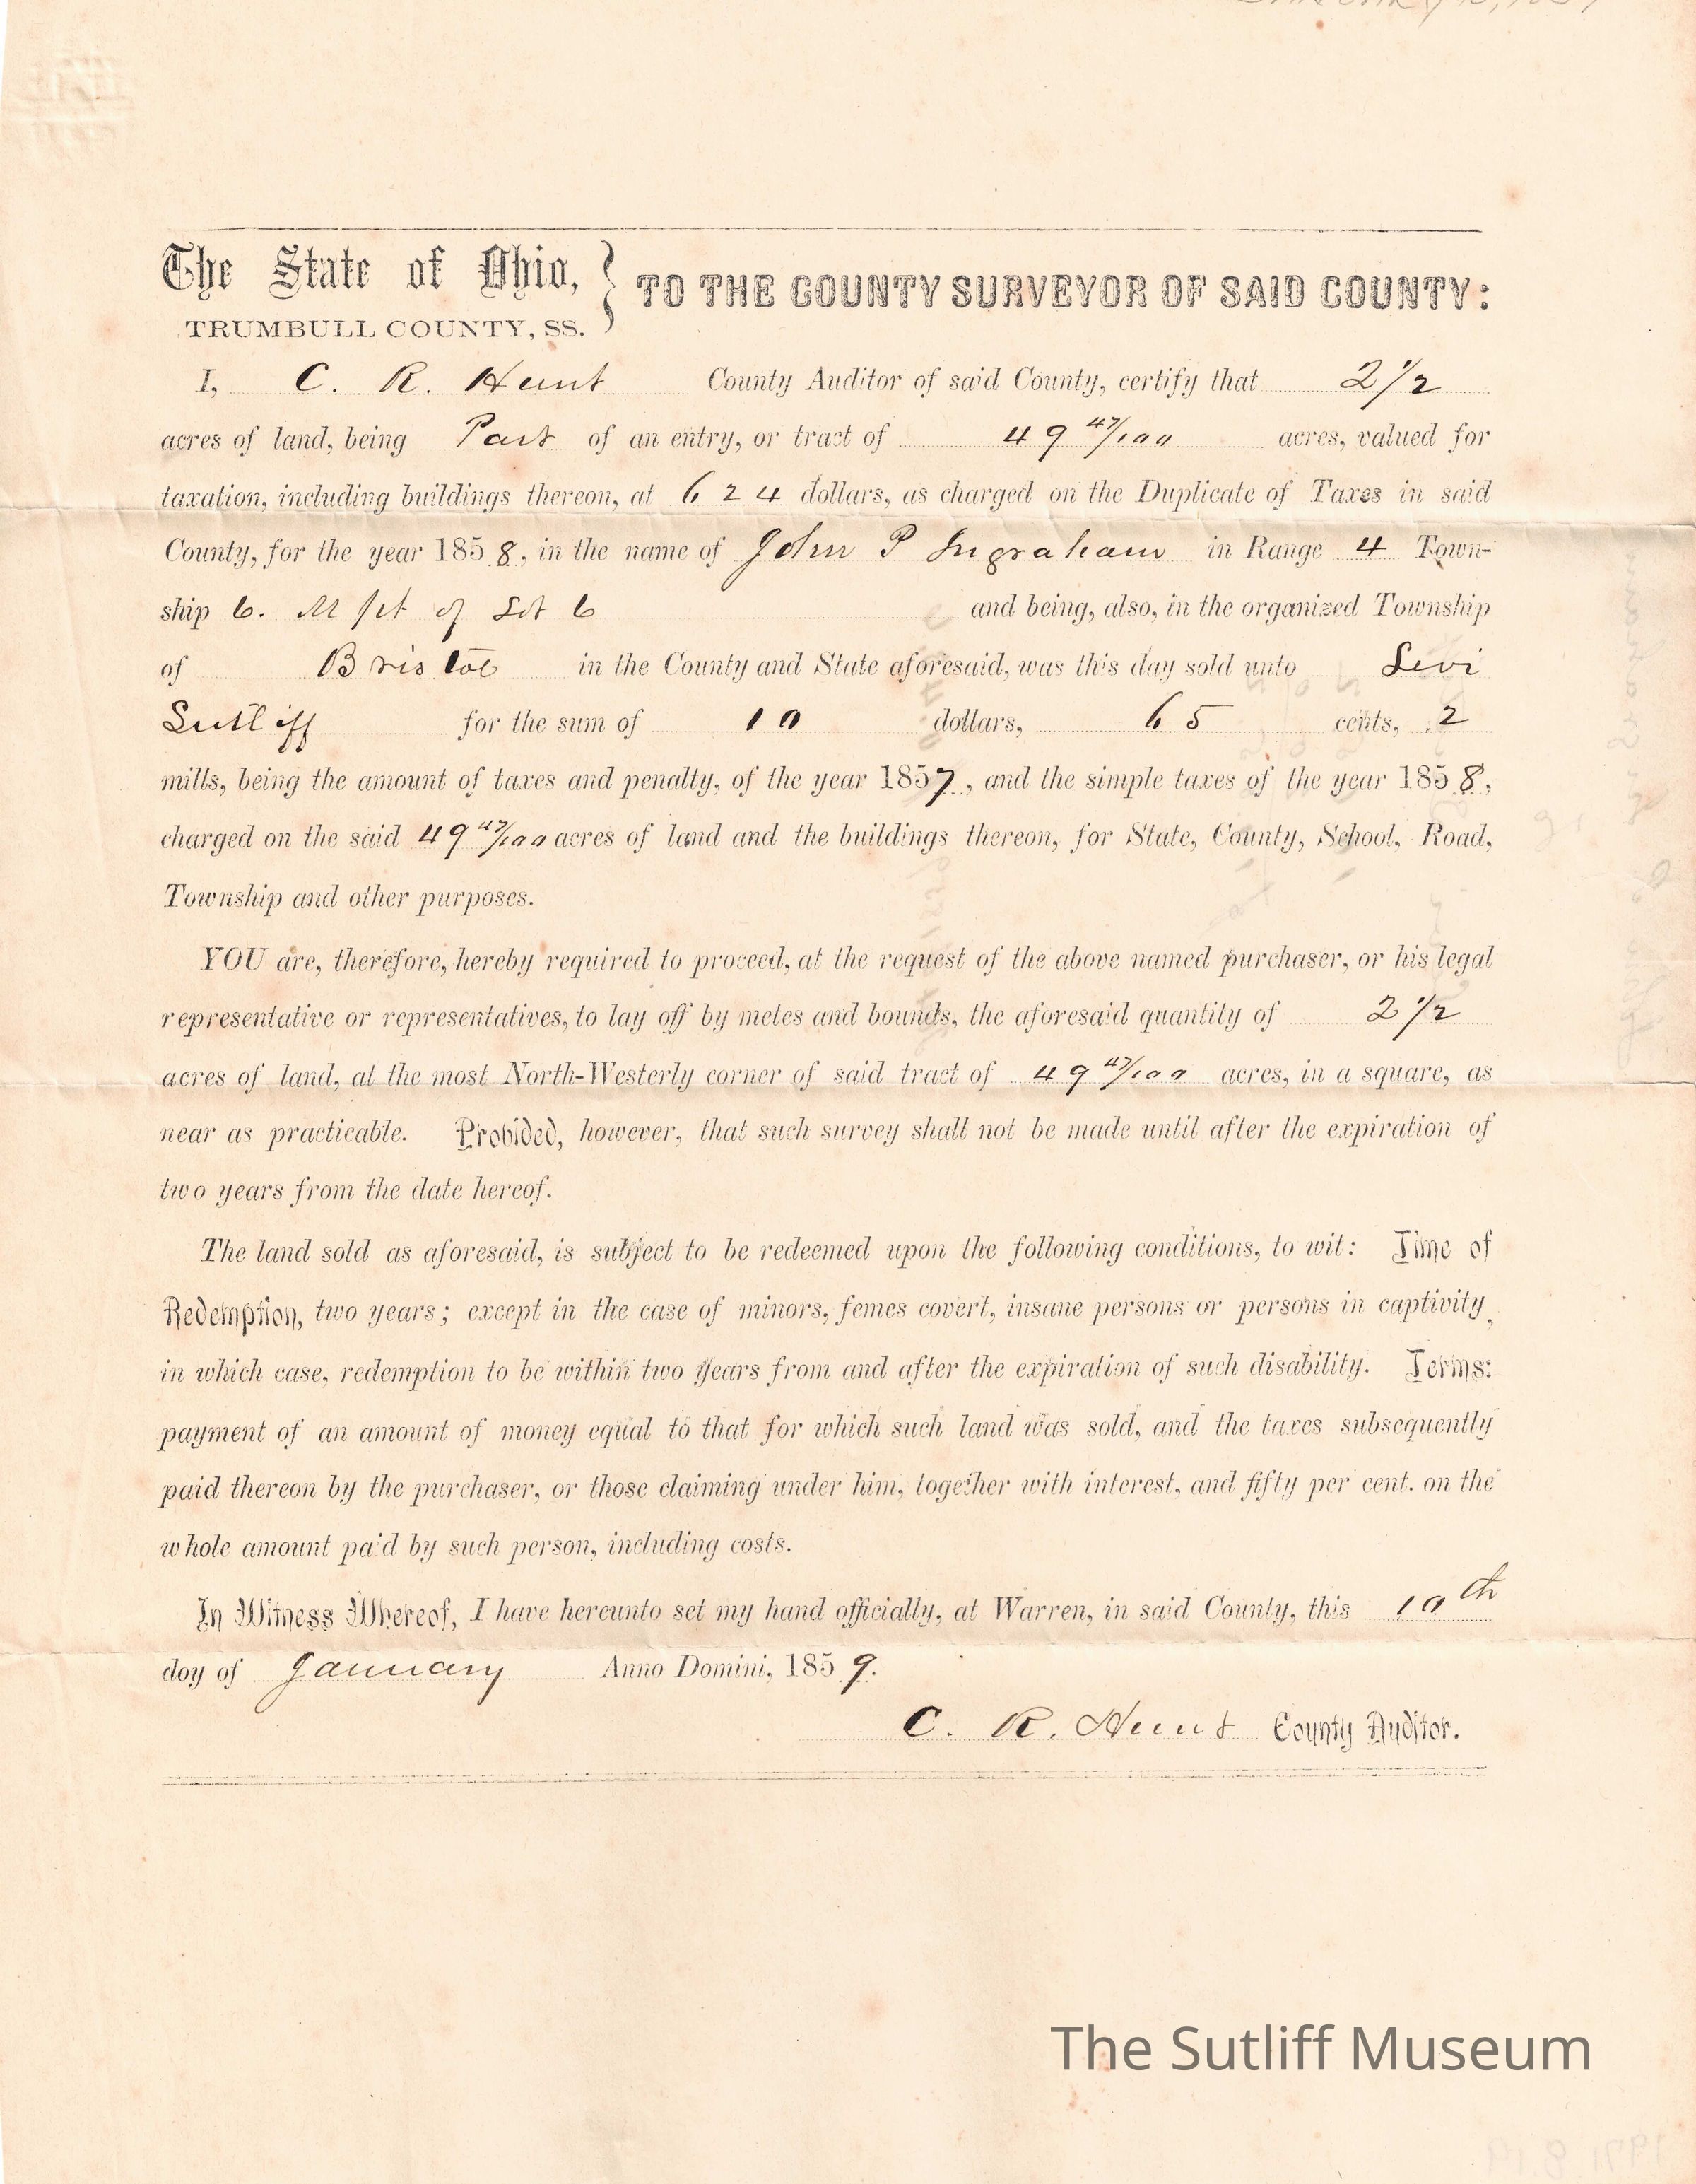 The State of Ohio, } TO THE COUNTY SURVEYOR OF SAID COUNTY:
TRUMBULL COUNTY, SS.
I, C. R. Hunt County Auditor of said County, certify that 2 1/2
acres of land, being Part of an entry, or tract of 49 47/100 acres, valued for
taxation, including buildings thereon, at 624 dollars, as charged on the Duplicate of Taxes in said
County, for the year 1858, in the name of John P Ingraham in Range 4 Town-
ship 6. M pt of Lot 6 and being, also, in the organized Township
of Bristol in the County and State aforesaid, was this day sold unto Levi
Sutliff for the sum of 10 dollars, 65 cents, 2
mills, being the amount of taxes and penalty, of the year 1857, and the simple taxes of the year 1858,
charged on the said 49 47/100 acres of land and the buildings thereon, for State, County, School, Road,
Township and other purposes.
YOU are, therefore, hereby required to proceed, at the request of the above named purchaser, or his legal
representative or representatives, to lay off by metes and bounds, the aforesaid quantity of 2 1/2
acres of land, at the most North-Westerly corner of said tract of 49 47/100 acres, in a square, as
near as practicable. Provided, however, that such survey shall not be made until after the expiration of
two years from the date hereof.
The land sold as aforesaid, is subject to be redeemed upon the following conditions, to wit: Time of
Redemption, two years; except in the case of minors, femes covert, insane persons or persons in captivity,
in which case, redemption to be within two years from and after the expiration of such disability. Terms:
payment of an amount of money equal to that for which such land was sold, and the taxes subsequently
paid thereon by the purchaser, or those claiming under him, together with interest, and fifty per cent. on the
whole amount paid by such person, including costs.
In Witness Whereof, I have hereunto set my hand officially, at Warren, in said County, this 10th
doy of January Anno Domini, 1859.
C. R. Hunt County Auditor.
The Sutliff Museum